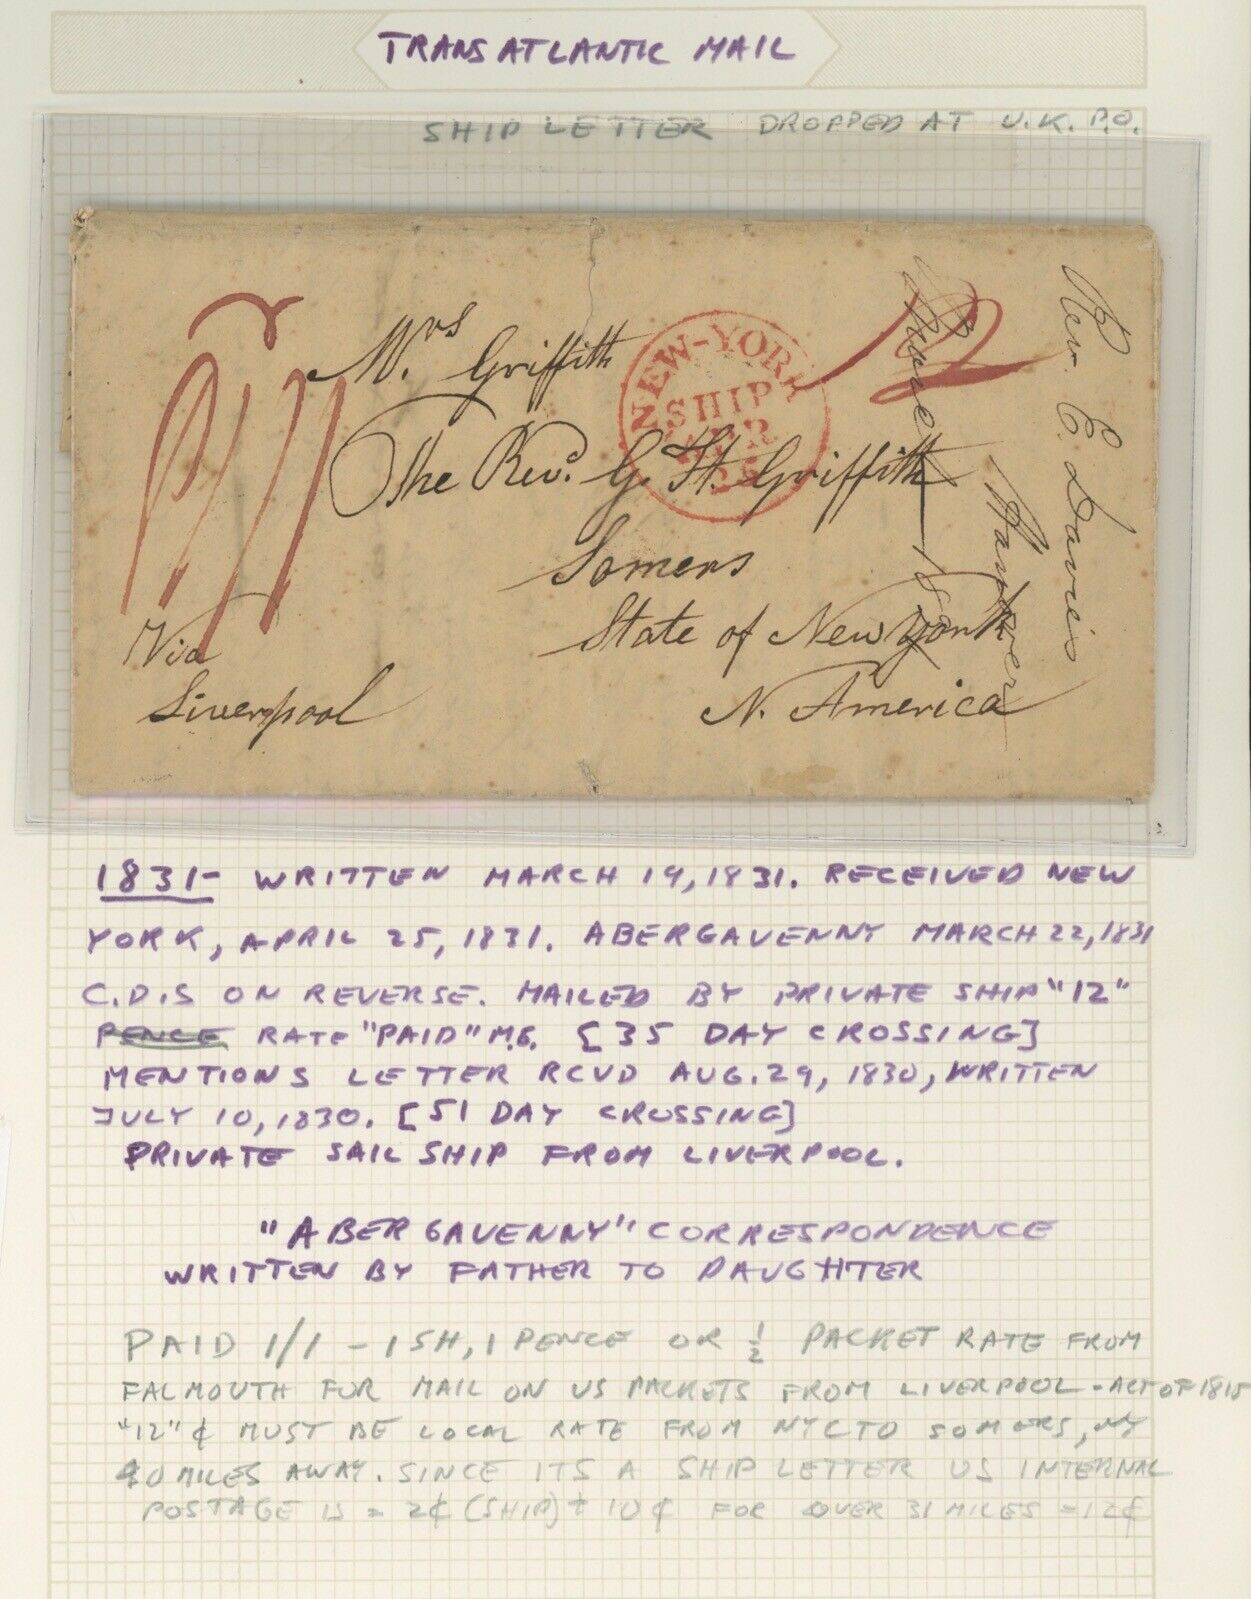 TRANSATLANTIC MAIL
SHIP LETTER DROPPED AT U.K. P.O.
Mrs Griffith
The Revd. G. H. Griffith
Somers
State of New York
N. America
Via
Liverpool
NEW-YORK
SHIP
APR
25
12
Rev. E. Davis
Hanover
1831- WRITTEN MARCH 19, 1831. RECEIVED NEW
YORK, APRIL 25, 1831. ABERGAVENNY MARCH 22, 1831
C.D.S ON REVERSE. MAILED BY PRIVATE SHIP "12"
PENCE RATE "PAID" M.S. [35 DAY CROSSING]
MENTIONS LETTER RCVD AUG. 29, 1830, WRITTEN
JULY 10, 1830. [51 DAY CROSSING]
PRIVATE SAIL SHIP FROM LIVERPOOL.
"ABERGAVENNY" CORRESPONDENCE
WRITTEN BY FATHER TO DAUGHTER
PAID 1/1 - 1 SH, 1 PENCE OR 1/2 PACKET RATE FROM
FALMOUTH FOR MAIL ON US PACKETS FROM LIVERPOOL - ACT OF 1815
"12" ¢ MUST BE LOCAL RATE FROM NYC TO SOMERS, NY
40 MILES AWAY. SINCE ITS A SHIP LETTER US INTERNAL
POSTAGE IS = 2¢ (SHIP) + 10¢ FOR OVER 31 MILES = 12¢